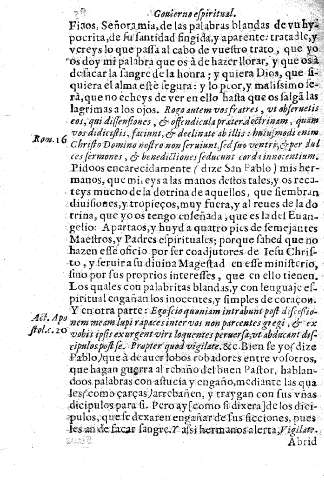 Govierno espiritual.
Fiaos, Señora mia, de las palabras blandas de vn hy
pocrita, de su santidad fingida, y aparente: tratadle, y
vereys lo que passa al cabo de vuestro trato, que yo
os doy mi palabra que os à de hazer llorar, y que os à
de sacar la sangre de la honra; y quiera Dios, que si
quiera el alma esté segura: y lo peor, y malissimo se
rà, que no echeys de ver en ello hasta que os salgã las
lagrimas a los ojos. Rogo autem vos fratres, vt obseruetis
eos, qui dissensiones, & offendicula præter doctrinam, quam
Rom. 16
vos didicistis, faciunt, & declinate ab illis: huiusmodi enim
Christo Domino nostro non seruiunt, sed suo ventri, & per dul
ces sermones, & benedictiones seducunt corda innocentium.
Pidoos encarecidamente (dize San Pablo) mis her-
manos, que mireys a las manos destos tales, y os reca-
teys mucho de la dotrina de aquellos, que siembran
diuisiones, y tropieços, muy fuera, y al reues de la do
trina, que yo os tengo enseñada, que es la del Euan-
gelio: Apartaos, y huyd a quatro pies de semejantes
Maestros, y Padres espirituales; porque sabed que no
hazen esse oficio por ser coadjutores de Iesu Christo
to, y seruir a su diuina Magestad en esse ministerio,
sino por sus proprios interesses, que en ello tienen.
Los quales con palabritas blandas, y con lenguaje es-
piritual engañan los inocentes, y simples de coraçon.
Act. Apo
stol. c. 20
Y en otra parte: Ego scio quoniam intrabunt post discessio-
nem meam lupi rapaces inter vos non parcentes gregi, & ex
vobis ipsis exurgent viri loquentes peruersa, vt abducant dis-
cipulos post se. Propter quod vigilate. &c. Bien se yo (dize
Pablo) que à de auer lobos robadores entre vosotros,
que hagan guerra al rebaño del buen Pastor, hablan-
doos palabras con astucia y engaño, mediante las qua
les (como çarças) arrebañen, y traygan con sus vñas
dicipulos para si. Pero ay [como si dixera] de los dici-
pulos, que se dexaren engañar de sus ficciones, pues
les an de sacar sangre. Y assi hermanos alerta, Vigilate.
Abrid